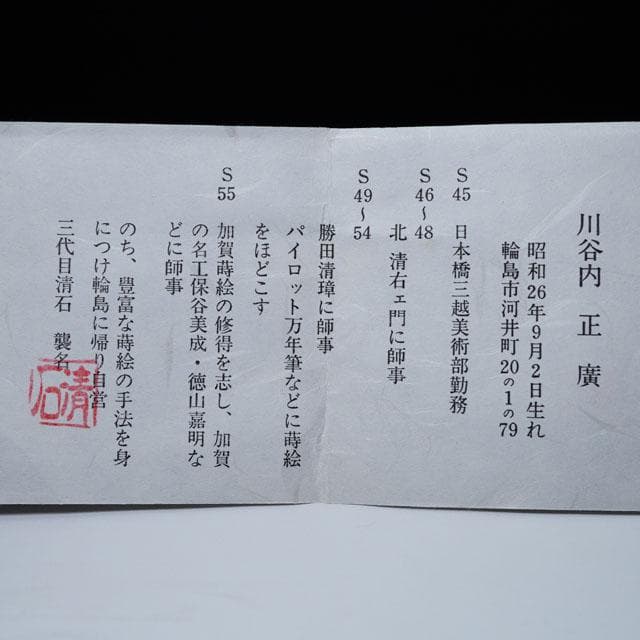 川谷内 正 廣
昭和26年9月2日生れ
輪島市河井町20の1の79
S45 日本橋三越美術部勤務
S46~48 北 清右ェ門に師事
S49~54 勝田清璋に師事
パイロット万年筆などに蒔絵
をほどこす
S55 加賀蒔絵の修得を志し、加賀
の名工保谷美成・徳山嘉明な
どに師事
のち、豊富な蒔絵の手法を身
につけ輪島に帰り自営
三代目清石 襲名
清石